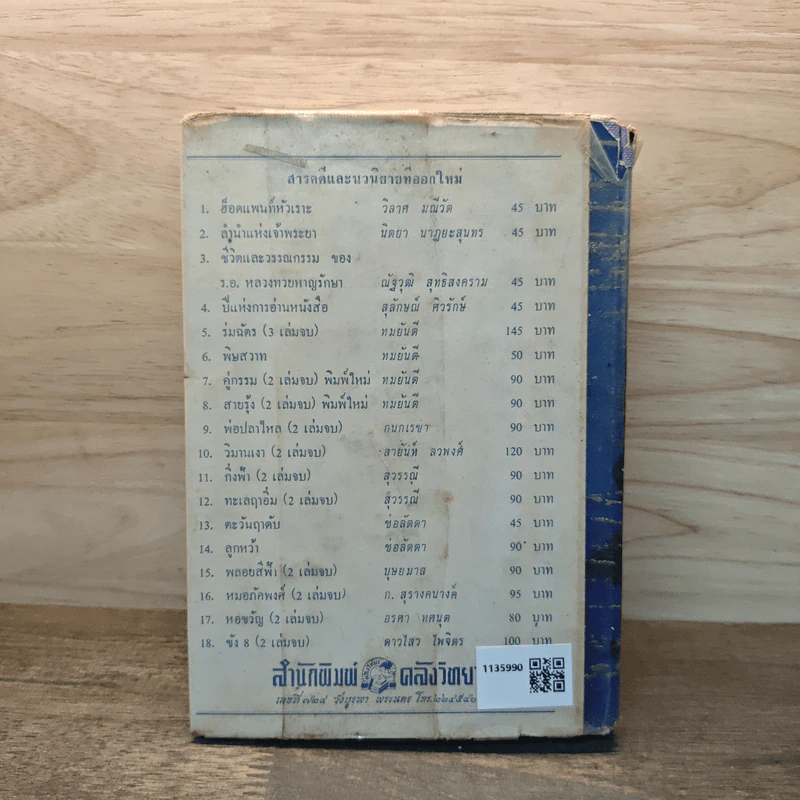 สารคดีและนวนิยายที่ออกใหม่
1. ฮ็อตแพนท์หัวเราะ วิลาศ มณีวัต 45 บาท
2. ลำนำแห่งเจ้าพระยา นิตยา นาฏยะสุนทร 45 บาท
3. ชีวิตและวรรณกรรม ของ
ร.อ. หลวงทวยหาญรักษา ณัฐวุฒิ สุทธิสงคราม 45 บาท
4. ปีแห่งการอ่านหนังสือ สุลักษณ์ ศิวรักษ์ 45 บาท
5. ร่มฉัตร (3 เล่มจบ) ทมยันตี 145 บาท
6. พิษสวาท ทมยันตี 50 บาท
7. คู่กรรม (2 เล่มจบ) พิมพ์ใหม่ ทมยันตี 90 บาท
8. สายรุ้ง (2 เล่มจบ) พิมพ์ใหม่ ทมยันตี 90 บาท
9. พ่อปลาไหล (2 เล่มจบ) กนกเรขา 90 บาท
10. วิมานเงา (2 เล่มจบ) สายันห์ ลวพงศ์ 120 บาท
11. กิ่งฟ้า (2 เล่มจบ) สุวรรณี 90 บาท
12. ทะเลฤาอิ่ม (2 เล่มจบ) สุวรรณี 90 บาท
13. ตะวันฤาดับ ช่อลัดดา 45 บาท
14. ลูกหว้า ช่อลัดดา 90 บาท
15. พลอยสีฟ้า (2 เล่มจบ) บุษยมาส 90 บาท
16. หมอภัคพงศ์ (2 เล่มจบ) ก. สุรางคนางค์ 95 บาท
17. หอขวัญ (2 เล่มจบ) อรศา ทศนุต 80 บาท
18. ขัง 8 (2 เล่มจบ) ดาวไสว ไพจิตร 100 บาท
สำนักพิมพ์ คลังวิทยา
เลขที่ ๗๒๔ วังบูรพา พระนคร โทร. ๒๒๔๕๔๖
1135990